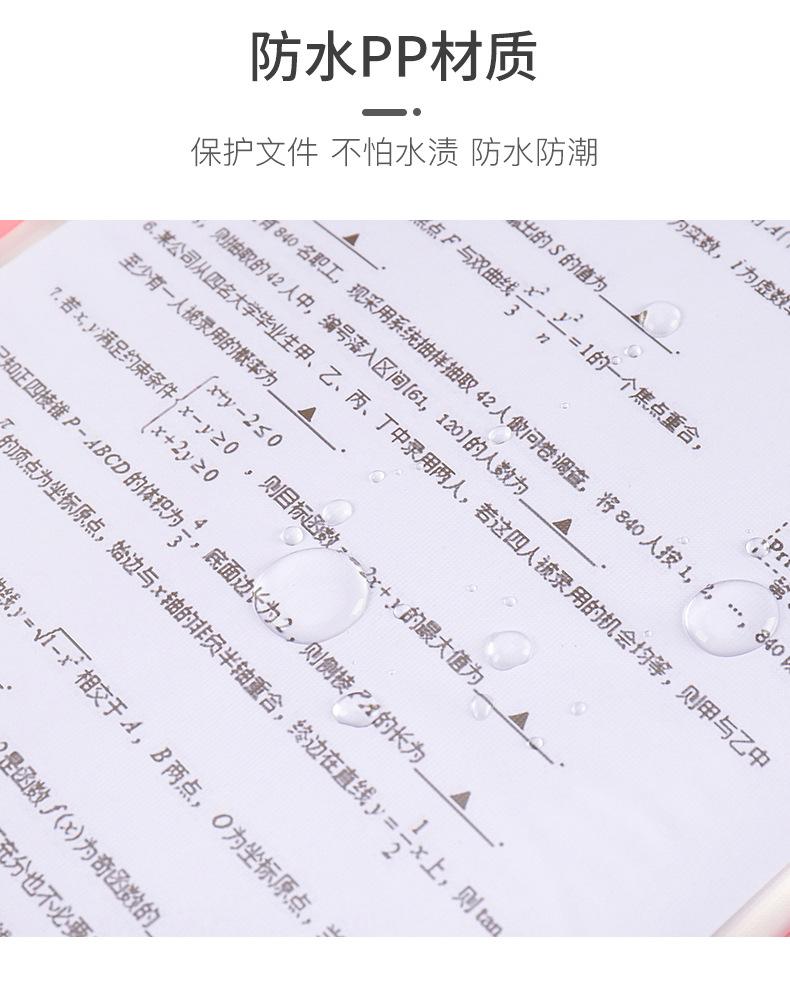 防水PP材质
保护文件 不怕水渍 防水防潮
为实数，i为虚数
输出的 S 的值为 ▲ .
焦点 F 与双曲线 x²/3 - y²/n =1的一个焦点重合，
有 840 名职工，现采用系统抽样抽取 42 人做问卷调查，将 840 人按 1, 2, …, 840
，则抽取的 42 人中，编号落入区间[61, 120]的人数为 ▲ .
6. 某公司从四名大学毕业生甲、乙、丙、丁中录用两人，若这四人被录用的机会均等，则甲与乙中
至少有一人被录用的概率为 ▲ .
7. 若 x, y 满足约束条件 { x+y-2≤0
x-y≥0
x+2y≥0 ，则目标函数 z=2x+y 的最大值为 ▲ .
已知正四棱锥 P-ABCD 的体积为 4/3，底面边长为2，则侧棱 PA 的长为 ▲ .
的顶点为坐标原点，始边与 x 轴的非负半轴重合，终边在直线 y=1/2 x上，则 tan
曲线 y=√1-x² 相交于 A，B 两点，O 为坐标原点，当
是函数 f(x)为奇函数的
充分也不必要